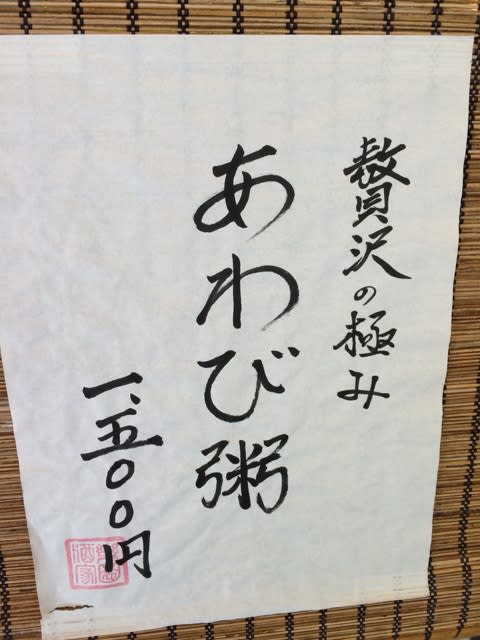 贅沢の極み
あわび粥
一、五〇〇円